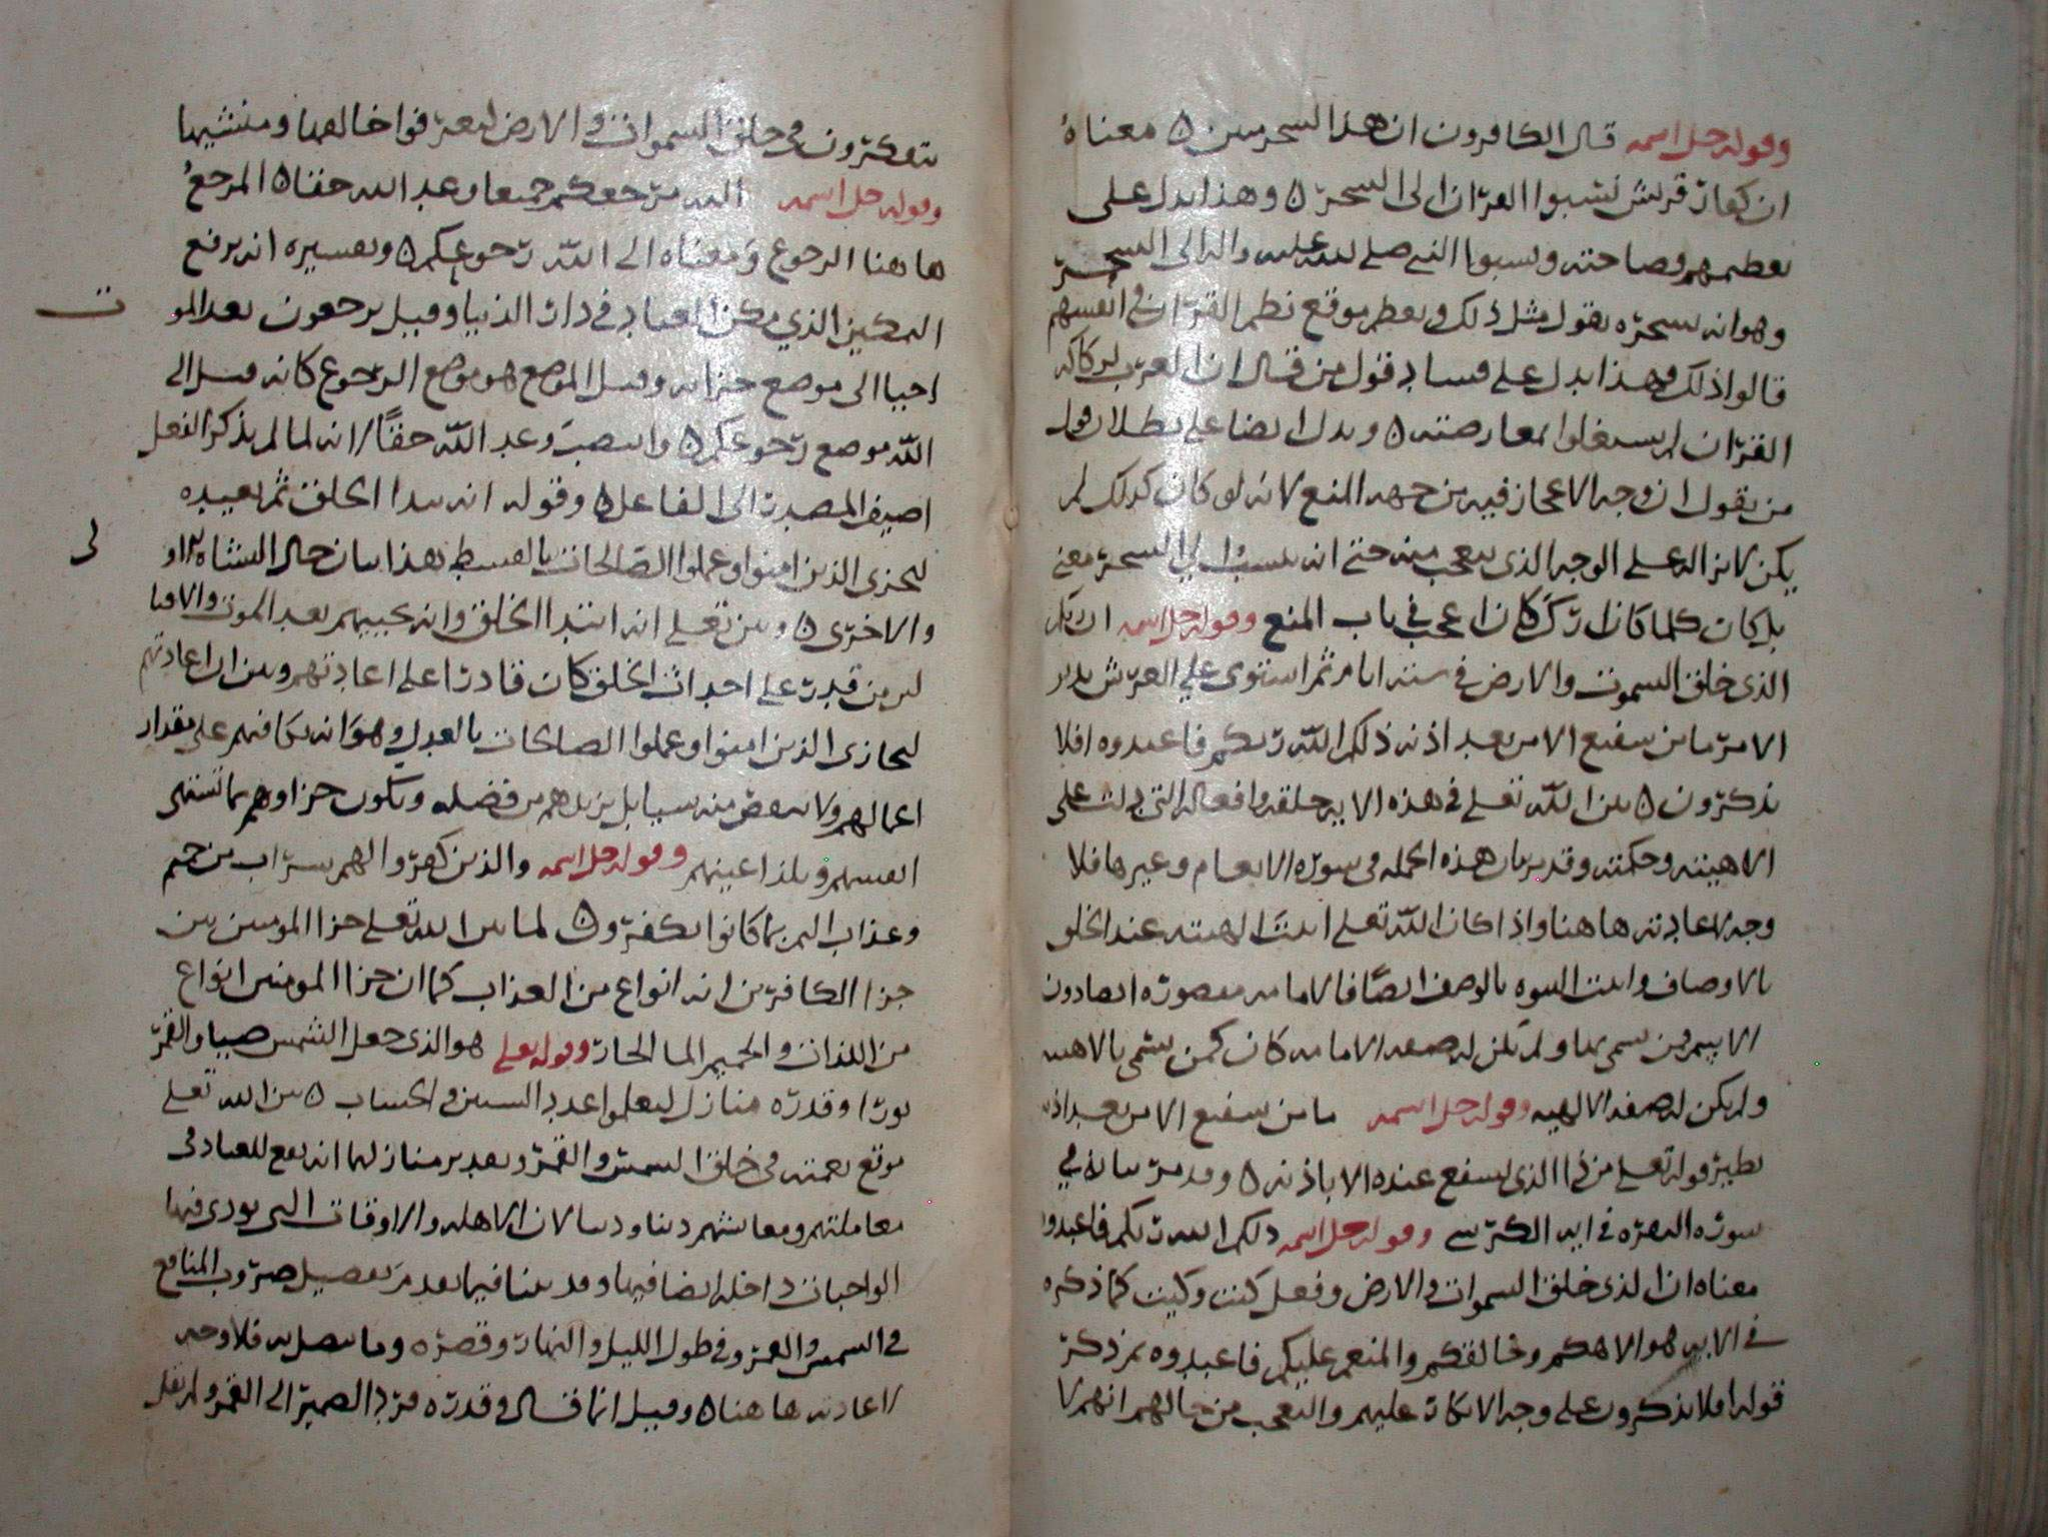 وقوله جل اسمه قال الكافرون ان هذا السحر مبين ٥ معناه
ان كفار قريش نسبوا القران الى السحر ٥ وهذا يدل على
تعظيمهم فصاحته ونسبوا النبي صلى الله عليه واله الى السحر
وهو انه بسحره يقول مثل ذلك ويعظم موقع نظم القران في انفسهم
قالوا ذلك وهذا يدل على فساد قول من قال ان العرب لركاكه
القران لم يشغلوا بمعارضته ٥ ويدل ايضا على بطلان قول
من يقول ان وجه الاعجاز فيه من جهه المنع لانه لو كان كذلك لم
يكن لانزاله على الوجه الذي يتعجب منه حتى انه ينسب الى السحر معنى
بل كان كلما كان ارك كان اعجب في باب المنع وقوله جل اسمه ان ربكم
الذى خلق السموت والارض في سته ايام ثم استوى على العرش يدبر
الامر ما من شفيع الا من بعد اذنه ذلكم الله ربكم فاعبدوه افلا
تذكرون ٥ بين الله تعلى في هذه الايه خلقه وافعاله التي دلت على
الاهيته وحكمته وقد بان هذه الجمله في سوره الانعام وغيرها فلا
وجه لاعادته هاهنا واذا كان الله تعلى اثبت الهيته عند الخلق
بالاوصاف واثبت النبوه بالوصف ايضًا فالامامه مقصوره ايضا دون
الاسم فمن سمي بها ولم يكن له صفه الامامه كان كمن يسمى بالاهيه
ولم يكن له صفه الالهيه وقوله جل اسمه ما من شفيع الا من بعد اذنه
نظير قوله تعلى من ذا الذى يشفع عنده الا باذنه ٥ وقد مر بيانه في
سوره البقره في ايه الكرسي وقوله جل اسمه ذلكم الله ربكم فاعبدوه
معناه ان الذى خلق السموات والارض وفعل كيت وكيت كما ذكره
في الايه هو الاهكم وخالقكم والمنعم عليكم فاعبدوه ثم ذكر
قوله افلا تذكرون على وجه الانكار عليهم والتعجب من حالهم انهم لا
يتفكرون في خلق السموات والارض ليعرفوا خالقها ومنشيها
وقوله جل اسمه اليه مرجعكم جميعا وعد الله حقا ٥ المرجع
هاهنا الرجوع ومعناه الى الله رجوعكم ٥ وتفسيره انه يرفع
التمكين الذي مكن العباد في دار الدنيا وقيل يرجعون بعد المو
ت
احيا الى موضع جزائه وقيل الموضع هو موضع الرجوع كانه قيل الى
الله موضع رجوعكم ٥ وانتصب وعد الله حقًا لانه لما لم يذكر الفعل
اضيف المصدر الى الفاعل ٥ وقوله انه يبدا الخلق ثم يعيده
ليجزى الذين امنوا وعملوا الصالحات بالقسط بهذا بيان حال النشاه الاو
لى
والاخرى ٥ وبين تعلى انه ابتدا الخلق وانه يحييهم بعد الموت والافنا
لان من قدر على احداث الخلق كان قادرا على اعادتهم وبين ان اعادتهم
ليجازى الذين امنوا وعملوا الصالحات بالعدل وهو انه يكافيهم على مقدار
اعمالهم ولا ينقص منه شيا بل يزيدهم من فضله ويكون جزاوهم بما تشتهى
انفسهم ويلذ اعينهم وقوله جل اسمه والذين كفروا لهم شراب من حميم
وعذاب اليم بما كانوا يكفرون ٥ لما بين الله تعلى جزا المومنين بين
جزا الكافرين انه انواع من العذاب كما ان جزا المومنين انواع
من اللذات والحميم الما الحار وقوله تعلى هو الذى جعل الشمس ضيا والقمر
نورا وقدره منازل لتعلموا عدد السنين والحساب ٥ بين الله تعلى
موقع نعمته في خلق الشمس والقمر وتقدير منازلهما انه نفع للعباد في
معاملتهم ومعايشهم دينا ودنيا لان الاهله والاوقات التي يودى فيها
الواجبات داخله ايضا فيها وقد بينا فيما تقدم تفصيل ضروب المنافع
في الشمس والقمر وفي طول الليل والنهار وقصره وما يتصل به فلا وجه
لاعادته هاهنا ٥ وقيل انما قال وقدره فرد الضمير الى القمر ولم يقل